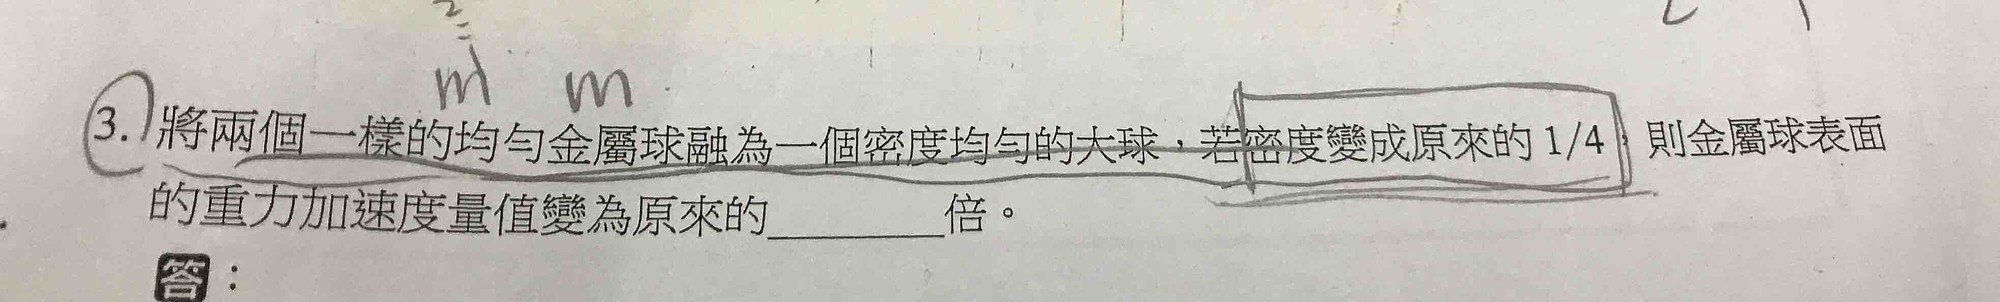 2
=
m m
3. 將兩個一樣的均勻金屬球融為一個密度均勻的大球，若密度變成原來的 1/4，則金屬球表面
的重力加速度量值變為原來的________倍。
答：